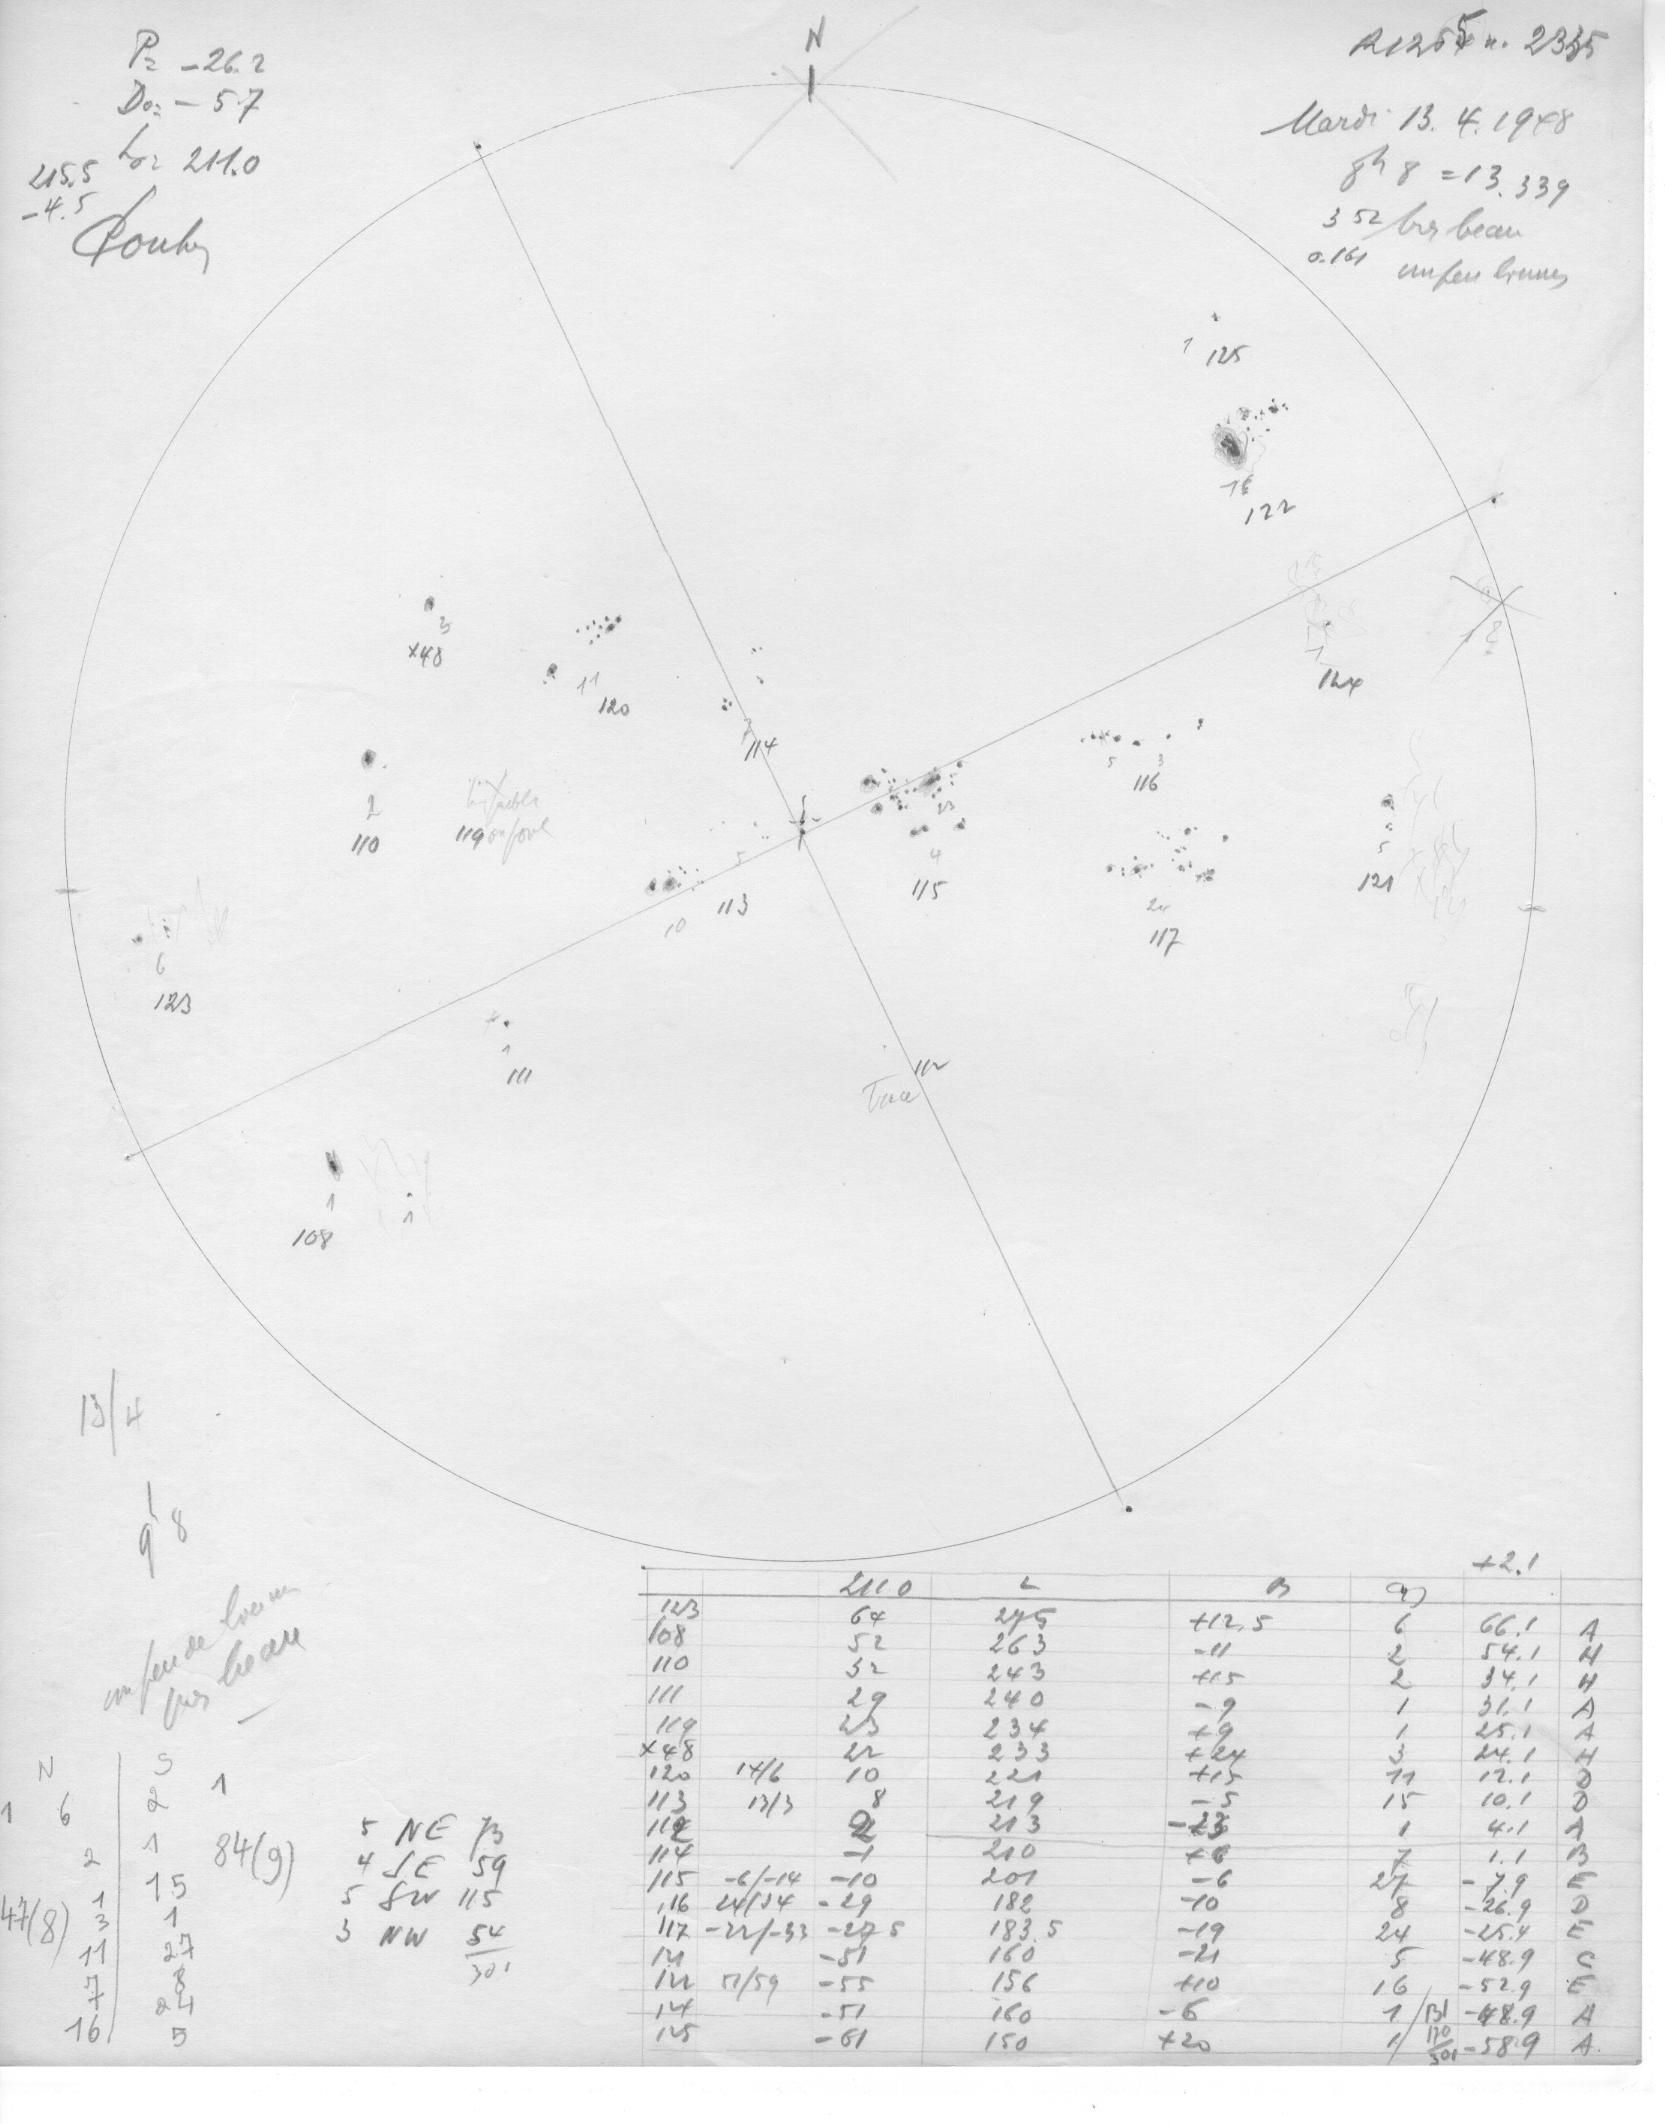 P= -26.2
Do= -5.7
Lo= 211.0
215.5
-4.5
N
n. 2335
Mardi 13.4.1948
8h 8 = 13.339
3 52 très beau
0.161 un peu brumeux
1 125
16
122
3
x48
11
120
7
114
1
124
5 3
116
2
110
119
23
4
115
5
121
5
10
113
24
117
6
123
1
111
112
Trace
1
108
1
13/4
8
un peu de
très beau
+2.1
211.0 L B
123 64 275 +12.5 6 66.1 A
108 52 263 -11 2 54.1 H
110 32 243 +15 2 34.1 H
111 29 240 -9 1 31.1 A
119 23 234 +9 1 25.1 A
x48 22 233 +24 3 24.1 H
120 14/6 10 221 +15 11 12.1 D
113 13/3 8 219 -5 15 10.1 D
112 2 213 -23 1 4.1 A
114 -1 210 +6 7 1.1 B
115 -6/-14 -10 201 -6 27 -7.9 E
116 24/34 -29 182 -10 8 -26.9 D
117 -22/-33 -27.5 183.5 -19 24 -25.4 E
121 -51 160 -21 5 -48.9 C
122 51/59 -55 156 +10 16 -52.9 E
124 -51 160 -6 1 131 -48.9 A
125 -61 150 +20 1 170 -58.9 A
301
N S
2 1
1 6
1
2 84(9)
15
1
47(8) 3 1
11 27
7 8
24
16 5
5 NE 73
4 SE 59
5 SW 115
3 NW 54
301